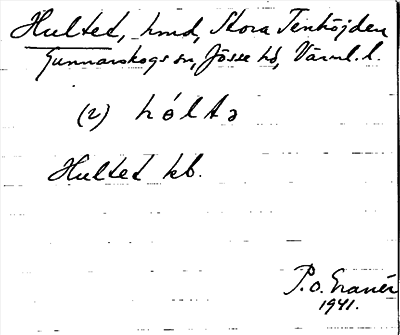 Hultet, hmd, Stora Tenhöjden
Gunnarskogs sn, Jösse hd, Värml. l.
(2) hóltə
Hultet kb.
P.O. Granér
1941.